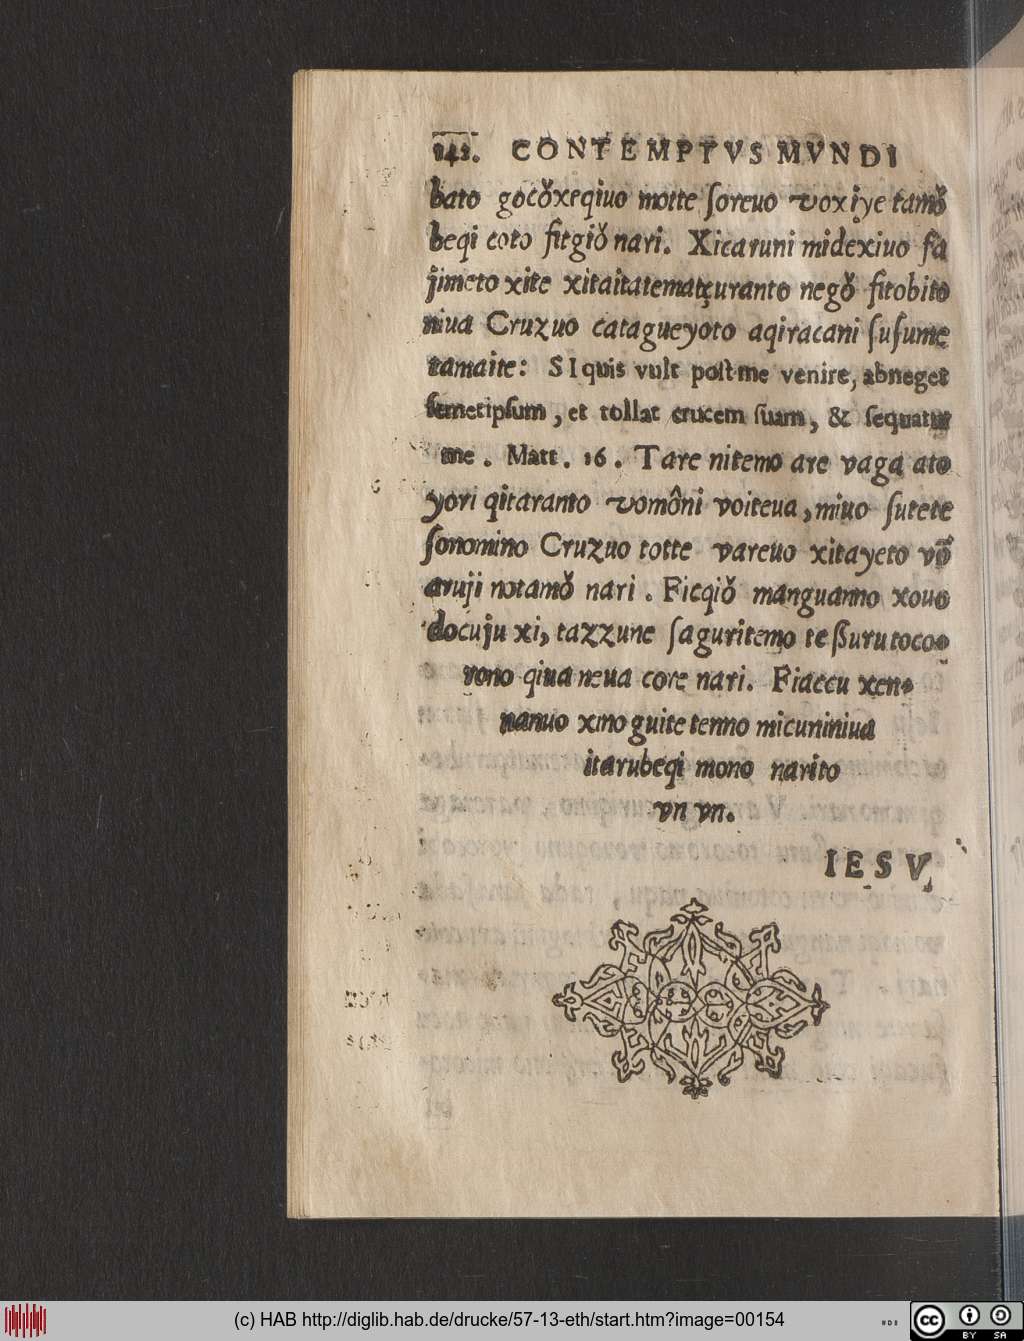 142. CONTEMPTVS MVNDI
bato gocǒxeqiuo motte ſoreuo voxiye tamǒ
beqi coto fitgiǒ nari. Xicaruni midexiuo ſa
jimeto xite xitaitatematçuranto negǒ fitobito
niua Cruzuo catagueyoto aqiracani ſuſume
tamaite: SI quis vult post me venire, abneget
ſemetipſum, et tollat crucem ſuam, & ſequatur
me. Matt. 16. Tare nitemo are vaga ato
yori qitaranto vomôni voiteua, miuo ſutete
ſonomino Cruzuo totte vareuo xitayeto võ
aruji notamǒ nari. Ficqiǒ manguanno xouo
docuju xi, tazzune ſaguritemo teßurutoco-
rono qiua neua core nari. Fiaccu xen-
nanuo xinoguite tenno micuniniua
itarubeqi mono narito
vn vn.
IESV,
(c) HAB http://diglib.hab.de/drucke/57-13-eth/start.htm?image=00154
cc BY SA